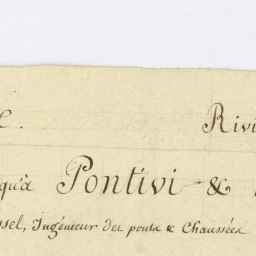 Rivi
qu'à Pontivi &
sel, Ingénieur des ponts & Chaussées